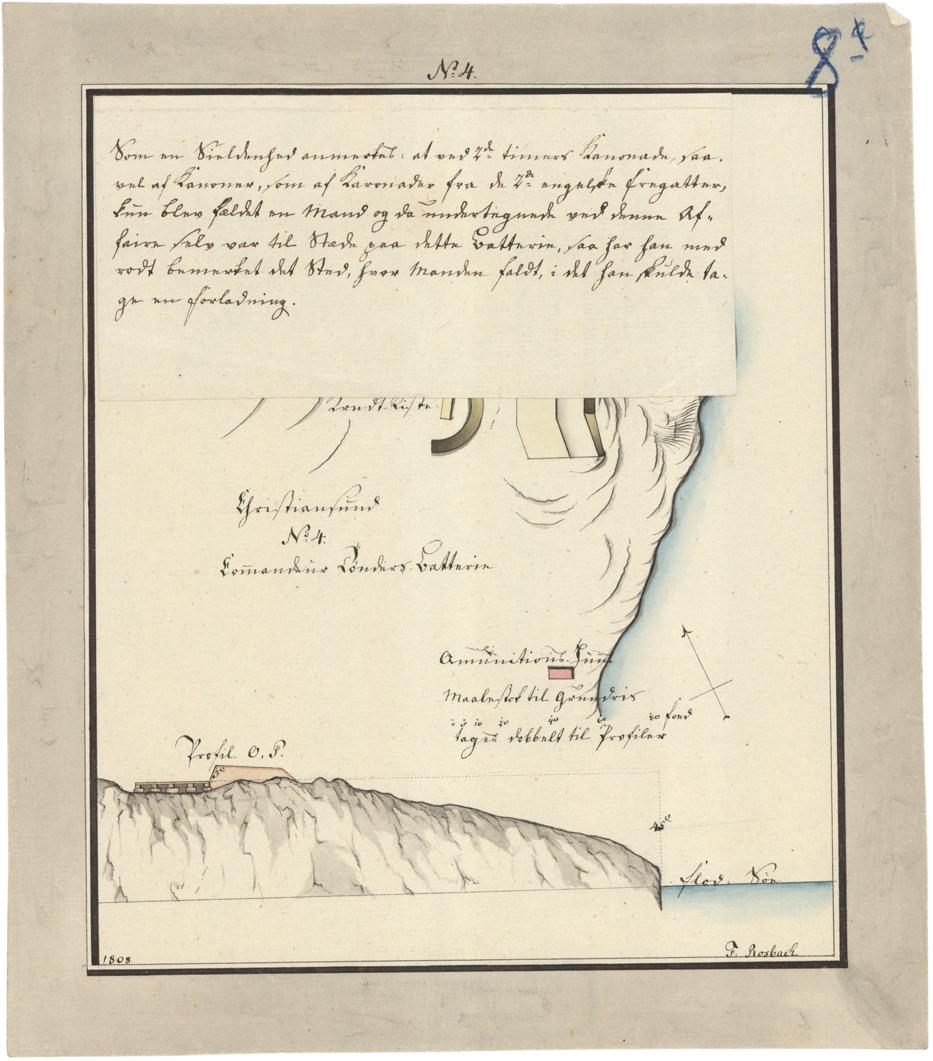 8 4
No 4.
Som en Sieldenhed anmerkes: at ved 2de timers Kanonade, saa-
vel af Kanoner, som af Karonader fra de 2de engelske Fregatter,
kun blev fældet en Mand og da undertegnede ved denne Af-
faire selv var til Stæde paa dette Batterie, saa har han med
rødt bemerket det Sted, hvor Manden faldt, i det han skulde ta-
ge en Forladning.
Krudt-Kiste
Christiansund
No 4.
Commandeur Batterie
Amunitions
Maalestok til Grundris
5 10 20 40 60 80 food
tages dobbelt til Profiler
Profil O. P.
45°
Flod Søe
1808.
F. Rosbach